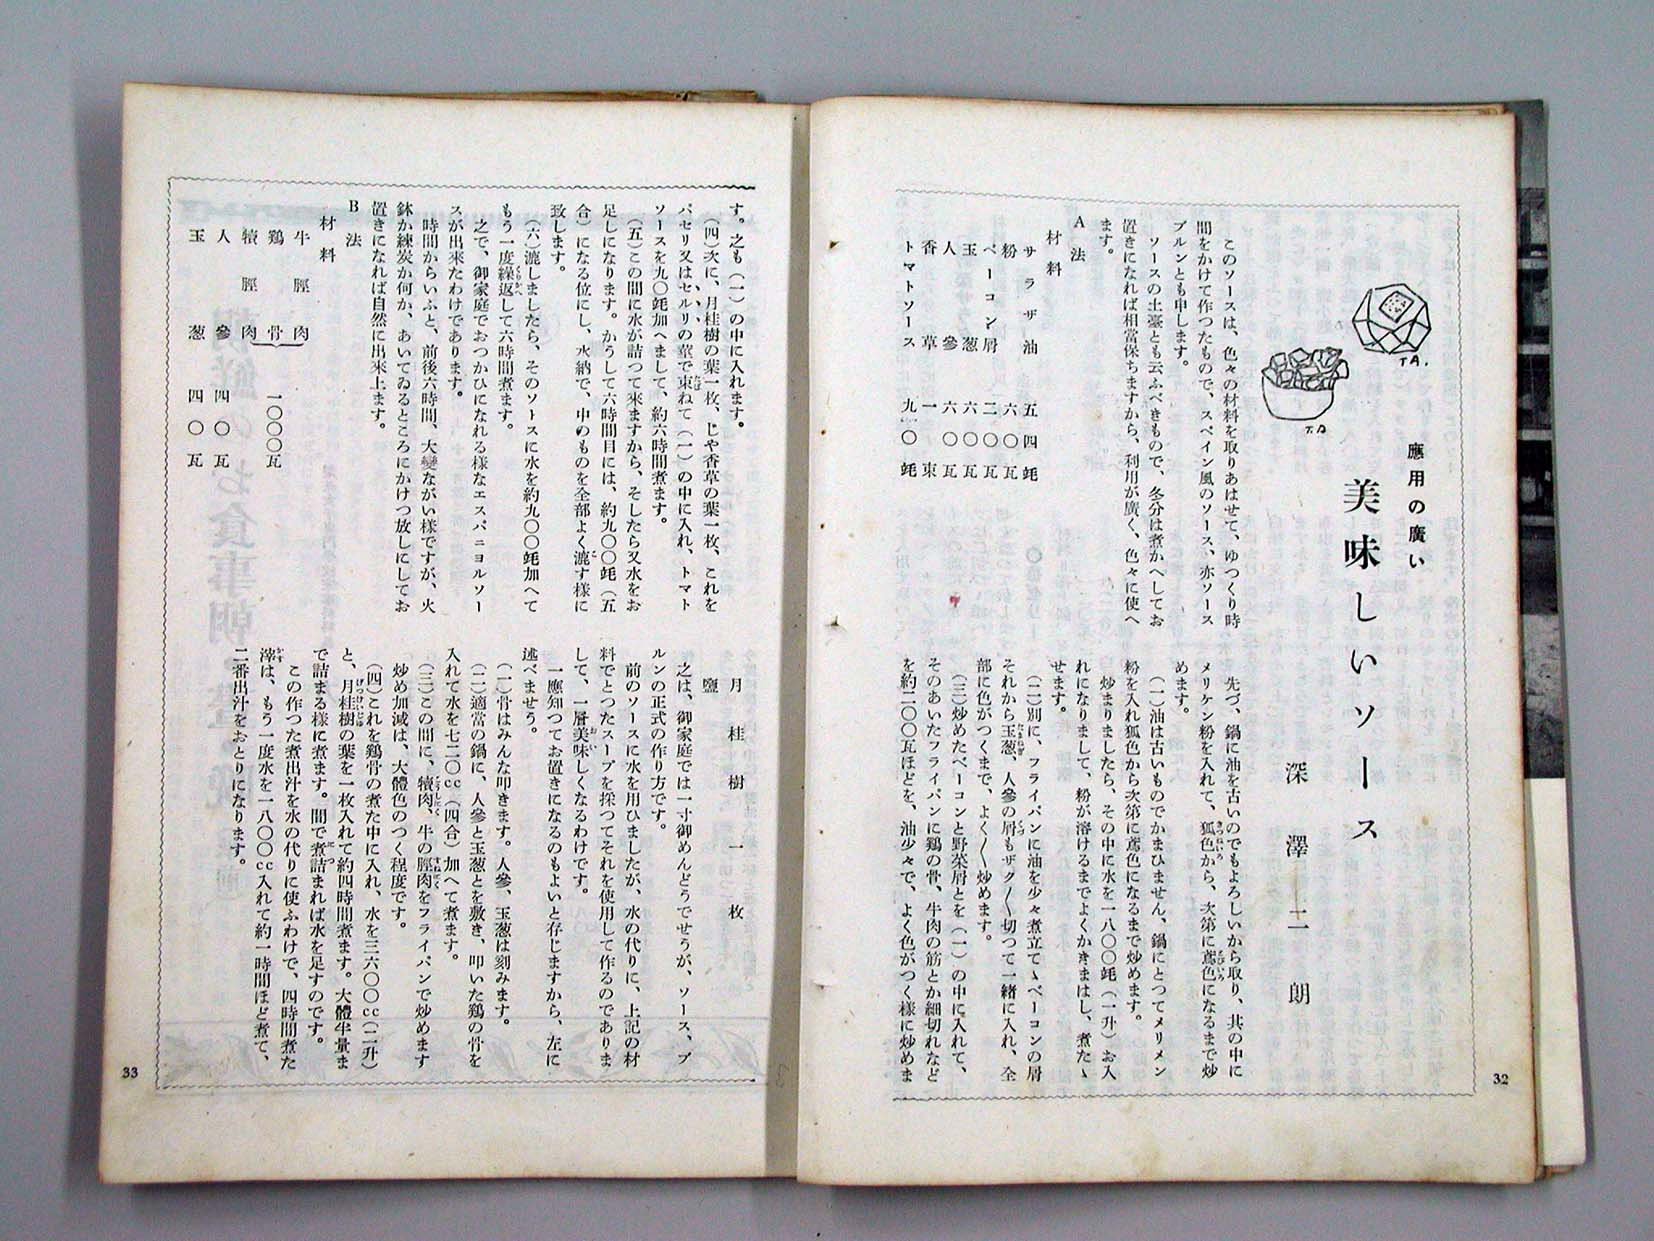 應用の廣い
美味しいソース
深澤二朗
TA.
T.A
このソースは、色々の材料を取りあはせて、ゆつくり時
間をかけて作つたもので、スペイン風のソース、亦ソース
ブルンとも申します。
ソースの土臺とも云ふべきもので、冬分は煮かへしてお
置きになれば相當保ちますから、利用が廣く、色々に使へ
ます。
A法
材料
サラザ油 五四竓
粉 六〇瓦
ベーコン屑 二〇瓦
玉葱 六〇瓦
人參 六〇瓦
香草 一束
トマトソース 九〇竓
先づ、鍋に油を古いのでもよろしいから取り、其の中に
メリケン粉を入れて、狐色から、次第に鳶色になるまで炒
めます。
(一)油は古いものでかまひません、鍋にとつてメリメン
粉を入れ狐色から次第に鳶色になるまで炒めます。
炒まりましたら、その中に水を一八〇〇竓(一升)お入
れになりまして、粉が溶けるまでよくかきまはし、煮たゝ
せます。
(二)別に、フライパンに油を少々煮立てゝベーコンの屑
それから玉葱、人參の屑もザク〱切つて一緒に入れ、全
部に色がつくまで、よく〱炒めます。
(三)炒めたベーコンと野菜屑とを(一)の中に入れて、
そのあいたフライパンに鷄の骨、牛肉の筋とか細切れなど
を約二〇〇瓦ほどを、油少々で、よく色がつく樣に炒めま
32
す。之も(一)の中に入れます。
(四)次に、月桂樹の葉一枚、じや香草の葉一枚、これを
パセリ又はセルリの莖で束ねて(一)の中に入れ、トマト
ソースを九〇竓加へまして、約六時間煮ます。
(五)この間に水が詰つて來ますから、そしたら又水をお
足しになります。かうして六時間目には、約九〇〇竓(五
合)になる位にし、水納で、中のものを全部よく漉す樣に
致します。
(六)漉しましたら、そのソトスに水を約九〇〇竓加へて
もう一度繰返して六時間煮ます。
之で、御家庭でおつかひになれる樣なエスパニヨルソー
スが出來たわけであります。
時間からいふと、前後六時間、大變ながい樣ですが、火
鉢か練炭か何か、あいてゐるところにかけつ放しにしてお
置きになれば自然に出來上ます。
B法
材料
牛脛肉
鷄骨 一〇〇〇瓦
犢脛肉
人參 四〇瓦
玉葱 四〇瓦
月桂樹 一枚
鹽
之は、御家庭では一寸御めんどうでせうが、ソース、ブ
ルンの正式の作り方です。
前のソースに水を用ひましたが、水の代りに、上記の材
料でとつたスープを採つてそれを使用して作るのでありま
して、一層美味しくなるわけです。
一應知つてお置きになるのもよいと存じますから、左に
述べませう。
(一)骨はみんな叩きます。人參、玉葱は刻みます。
(二)適當の鍋に、人參と玉葱とを敷き、叩いた鷄の骨を
入れて水を七二〇cc(四合)加へて煮ます。
(三)この間に、犢肉、牛の脛肉をフライパンで炒めます
炒め加減は、大體色のつく程度です。
(四)これを鷄骨の煮た中に入れ、水を三六〇〇cc(二升)
と、月桂樹の葉を一枚入れて約四時間煮ます。大體半量ま
で詰まる樣に煮ます。間で煮詰まれば水を足すのです。
この作つた煮出汁を水の代りに使ふわけで、四時間煮た
滓は、もう一度水を一八〇〇cc入れて約一時間ほど煮て、
二番出汁をおとりになります。
33